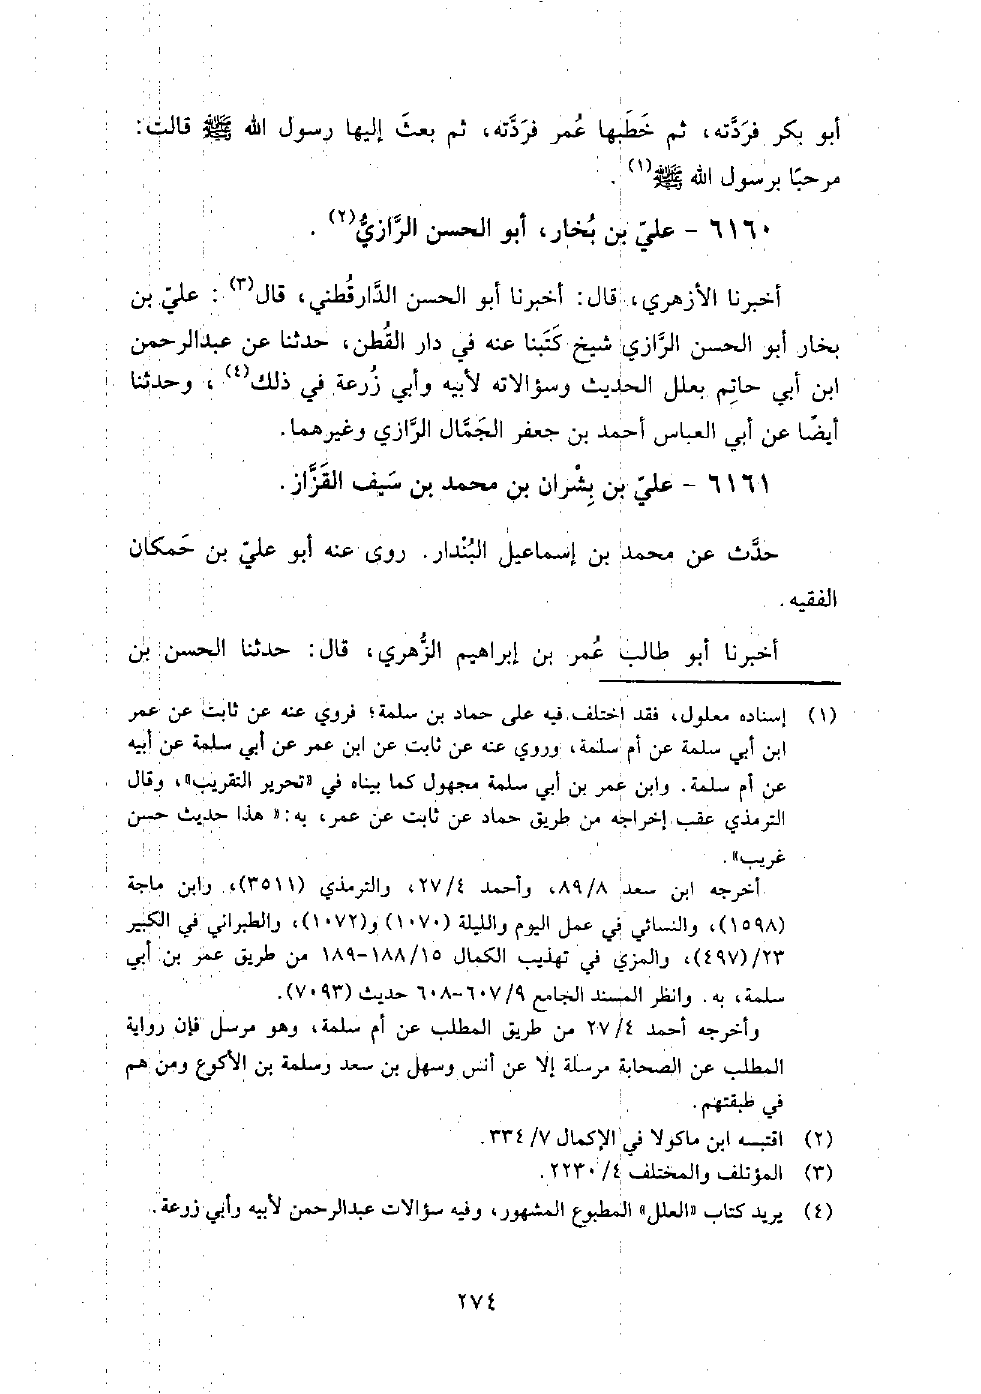 أبو بكر فرَدَّته، ثم خَطَبها عُمر فرَدَّته، ثم بعثَ إليها رسول الله ﷺ قالت:
مرحبًا برسول الله ﷺ(١) .
٦١٦٠ - عليّ بن بُخار، أبو الحسن الرَّازيُّ(٢) .
أخبرنا الأزهري، قال: أخبرنا أبو الحسن الدَّارقُطني، قال(٣) : عليّ بن
بخار أبو الحسن الرَّازي شيخ كَتَبنا عنه في دار القُطن، حدثنا عن عبدالرحمن
ابن أبي حاتِم بعلل الحديث وسؤالاته لأبيه وأبي زُرعة في ذلك(٤) ، وحدثنا
أيضًا عن أبي العباس أحمد بن جعفر الجَمَّال الرَّازي وغيرهما.
٦١٦١ - عليّ بن بِشْران بن محمد بن سَيف القَزَّاز.
حدَّث عن محمد بن إسماعيل البُنْدار. روى عنه أبو عليّ بن حَمكان
الفقيه.
أخبرنا أبو طالب عُمر بن إبراهيم الزُّهري، قال: حدثنا الحسن بن
(١) إسناده معلول، فقد اختلف فيه على حماد بن سلمة؛ فروي عنه عن ثابت عن عمر
ابن أبي سلمة عن أم سلمة، وروي عنه عن ثابت عن ابن عمر عن أبي سلمة عن أبيه
عن أم سلمة. وابن عمر بن أبي سلمة مجهول كما بيناه في «تحرير التقريب»، وقال
الترمذي عقب إخراجه من طريق حماد عن ثابت عن عمر، به:« هذا حديث حسن
غريب».
أخرجه ابن سعد ٨/ ٨٩، وأحمد ٤/ ٢٧، والترمذي (٣٥١١)، وابن ماجة
(١٥٩٨)، والنسائي في عمل اليوم والليلة (١٠٧٠) و(١٠٧٢)، والطبراني في الكبير
٢٣/(٤٩٧)، والمزي في تهذيب الكمال ١٥/ ١٨٨-١٨٩ من طريق عمر بن أبي
سلمة، به. وانظر المسند الجامع ٩/ ٦٠٧-٦٠٨ حديث (٧٠٩٣).
وأخرجه أحمد ٤/ ٢٧ من طريق المطلب عن أم سلمة، وهو مرسل فإن رواية
المطلب عن الصحابة مرسلة إلا عن أنس وسهل بن سعد وسلمة بن الأكوع ومن هم
في طبقتهم.
(٢) اقتبسه ابن ماكولا في الإكمال ٧/ ٣٣٤.
(٣) المؤتلف والمختلف ٤/ ٢٢٣٠.
(٤) يريد كتاب «العلل» المطبوع المشهور، وفيه سؤالات عبدالرحمن لأبيه وأبي زرعة.
٢٧٤